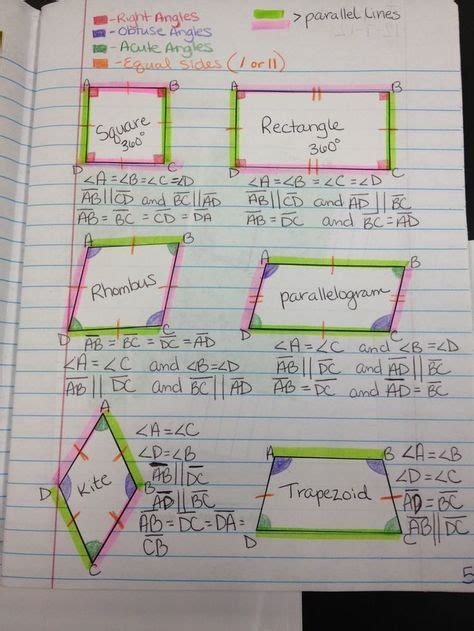 -Right Angles
-Obtuse Angles
-Acute Angles
-Equal Sides (| or ||)
> parallel Lines
A B
Square
360°
D C
∠A=∠B=∠C=∠D
AB||CD and BC||AD
AB = BC = CD = DA
A B
Rectangle
360°
D C
∠A=∠B = ∠C = ∠D
AB||CD and AD||BC
AB = DC and BC = AD
A B
Rhombus
D C
AB = BC = DC = AD
∠A = ∠C and ∠B=∠D
AB || DC and BC || AD
A B
parallelogram
D C
∠A = ∠C and ∠B = ∠D
AB || DC and AD || BC
AB = DC and AD = BC
A
D Kite B
C
∠A=∠C
∠D=∠B
AB||DC
AD||BC
AB = DC = DA =
CB
A B
Trapezoid
D C
∠A = ∠B
∠D = ∠C
AD = BC
AB||DC
5